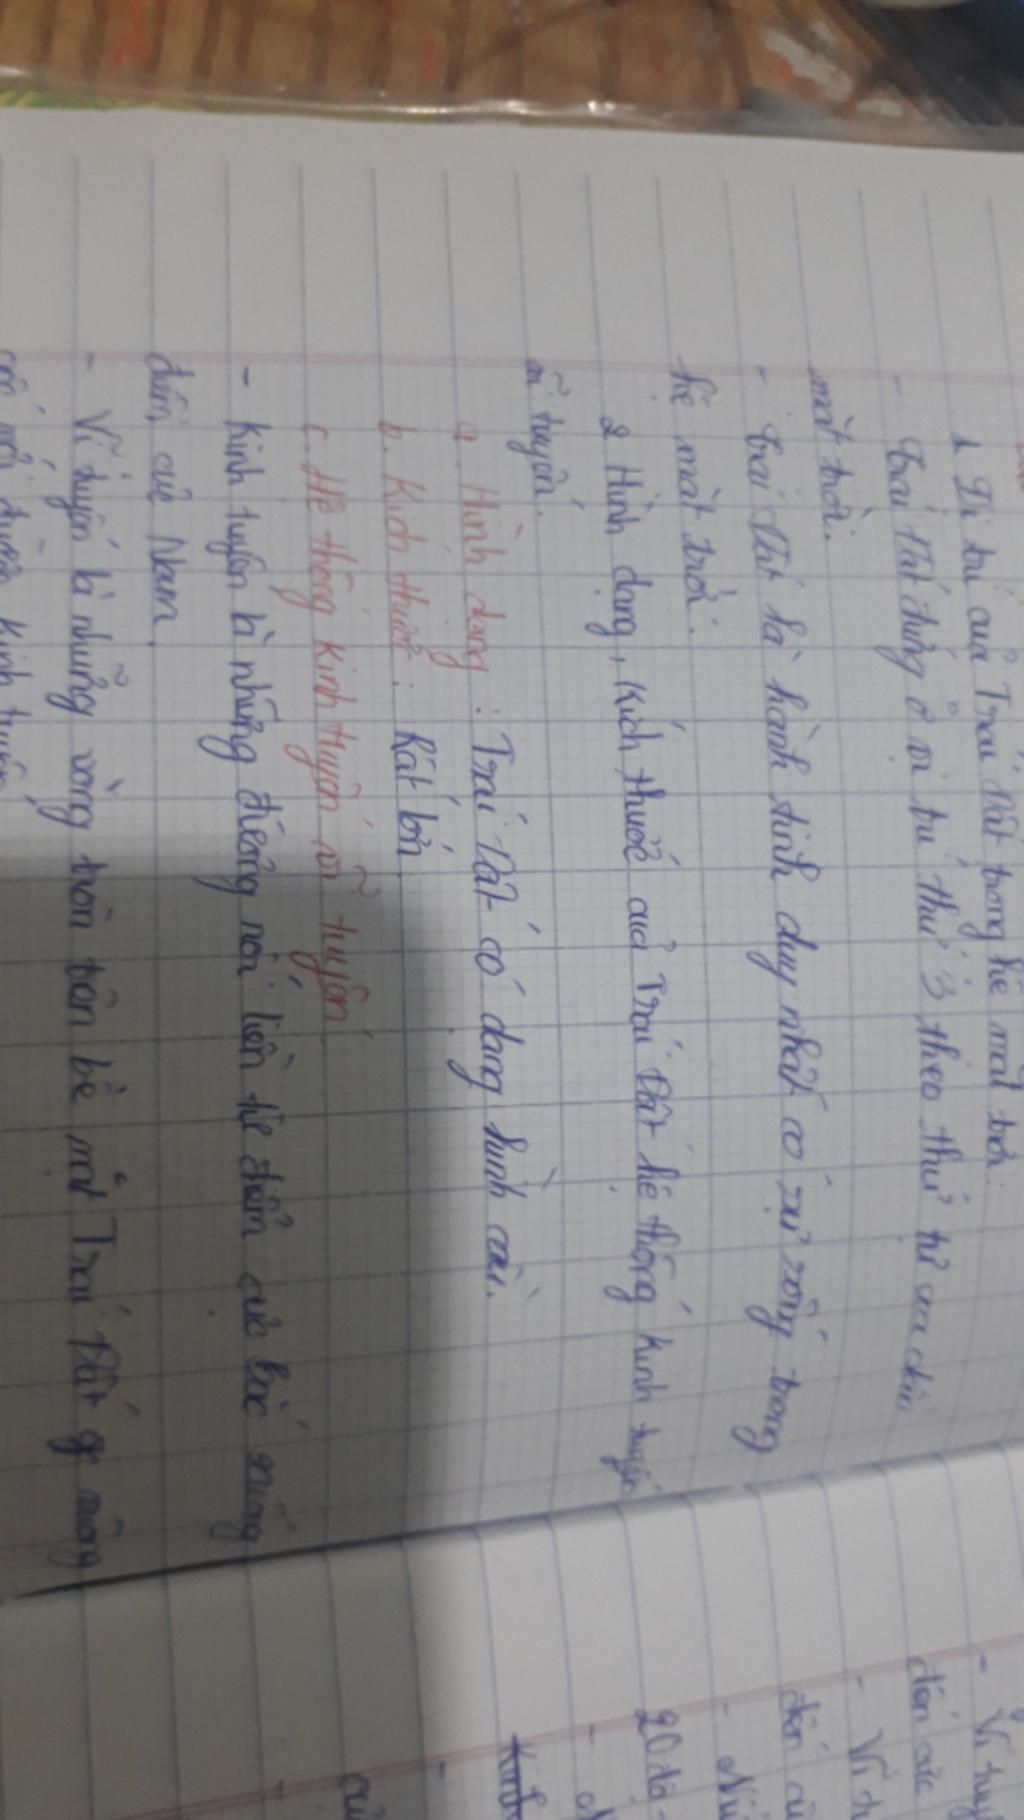 1. Vị trí của Trái Đất trong hệ mặt trời:
- Trái Đất đứng ở vị trí thứ 3 theo thứ tự xa dần
mặt trời.
- Trái Đất là hành tinh duy nhất có sự sống trong
hệ mặt trời.
2 Hình dạng, kích thước của Trái Đất hệ thống kinh tuyến
vĩ tuyến.
a. Hình dạng: Trái Đất có dạng hình cầu.
b. Kích thước: Rất lớn.
c. Hệ thống kinh tuyến vĩ tuyến
- Kinh tuyến là những đường nối liền từ điểm cực Bắc xuống
điểm cực Nam.
- Vĩ tuyến là những vòng tròn trên bề mặt Trái Đất vuông
kinh tuyến
- Vĩ
đến cực
- Vĩ
đến
-
20
-
-